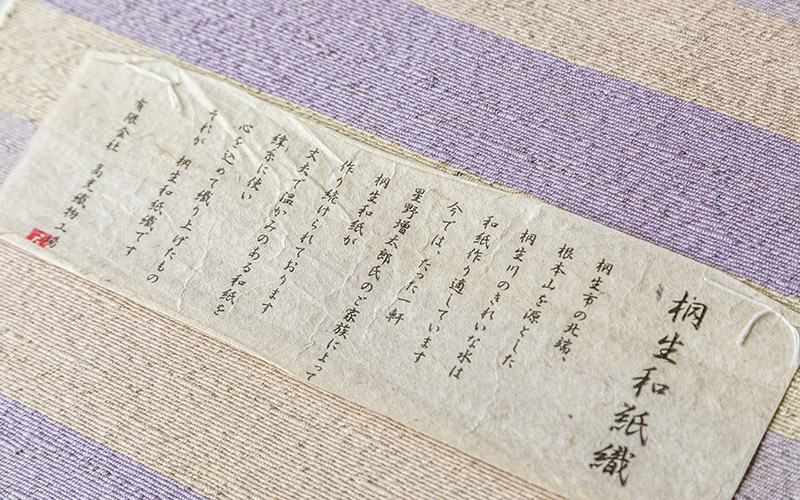 桐生和紙織
桐生市の北端、
根本山を源とした
桐生川のきれいな水は
和紙作り適しています
今では、たった一軒
星野増太郎氏のご家族によって
桐生和紙が
作り続けられております
丈夫で温かみのある和紙を
緯糸に使い
心を込めて織り上げたもの
それが 桐生和紙織です
有限会社 高光織物工場